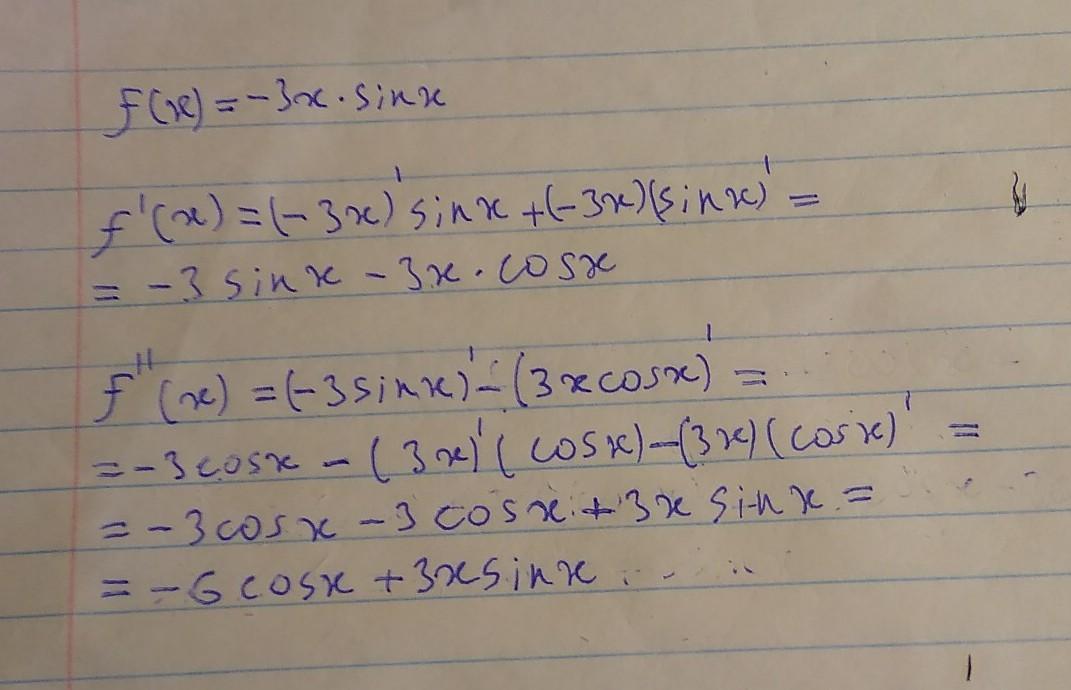 f(x) = -3x · sinx
f'(x) = (-3x)' sinx + (-3x)(sinx)' =
= -3 sinx - 3x · cosx
f''(x) = (-3sinx)' - (3xcosx)' =
= -3cosx - (3x)'(cosx) - (3x)(cosx)' =
= -3cosx - 3cosx + 3x sinx =
= -6cosx + 3xsinx